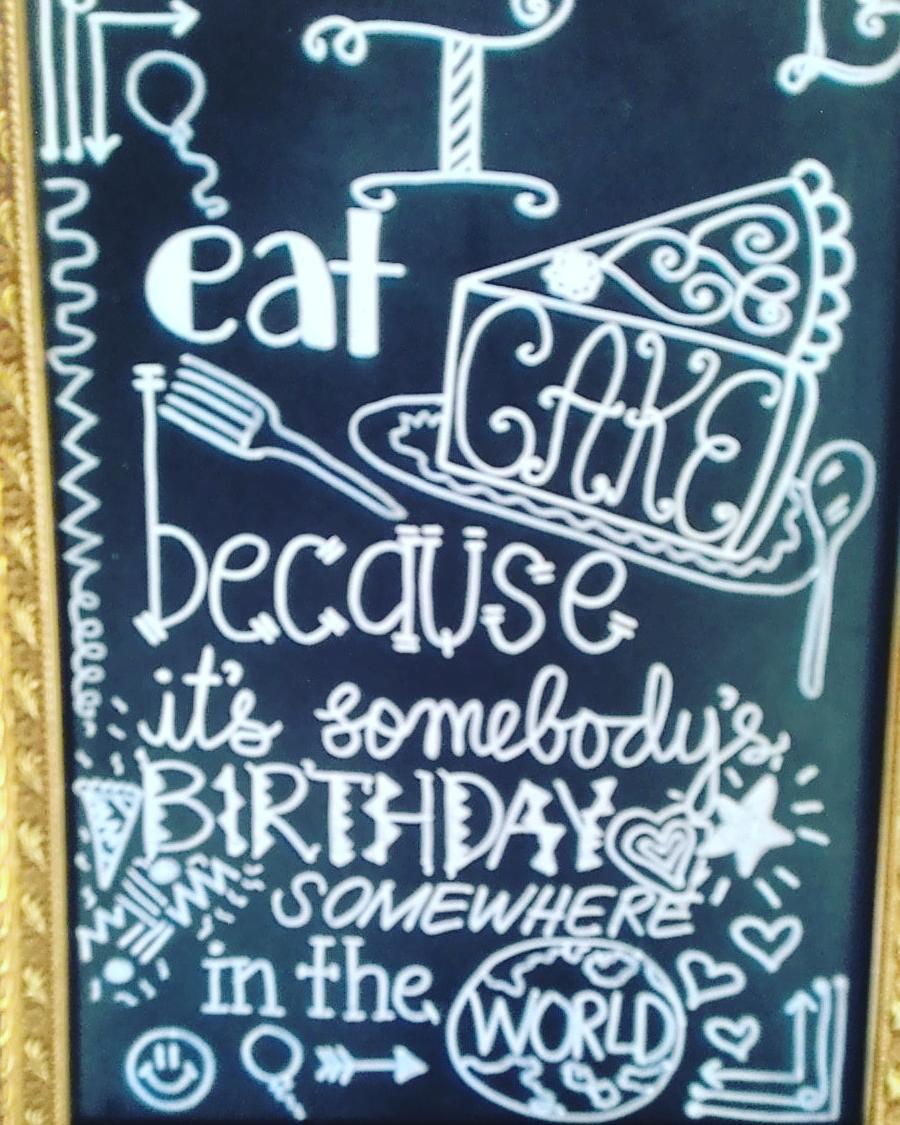 eat
CAKE
because
it's somebody's
BIRTHDAY
SOMEWHERE
in the
WORLD